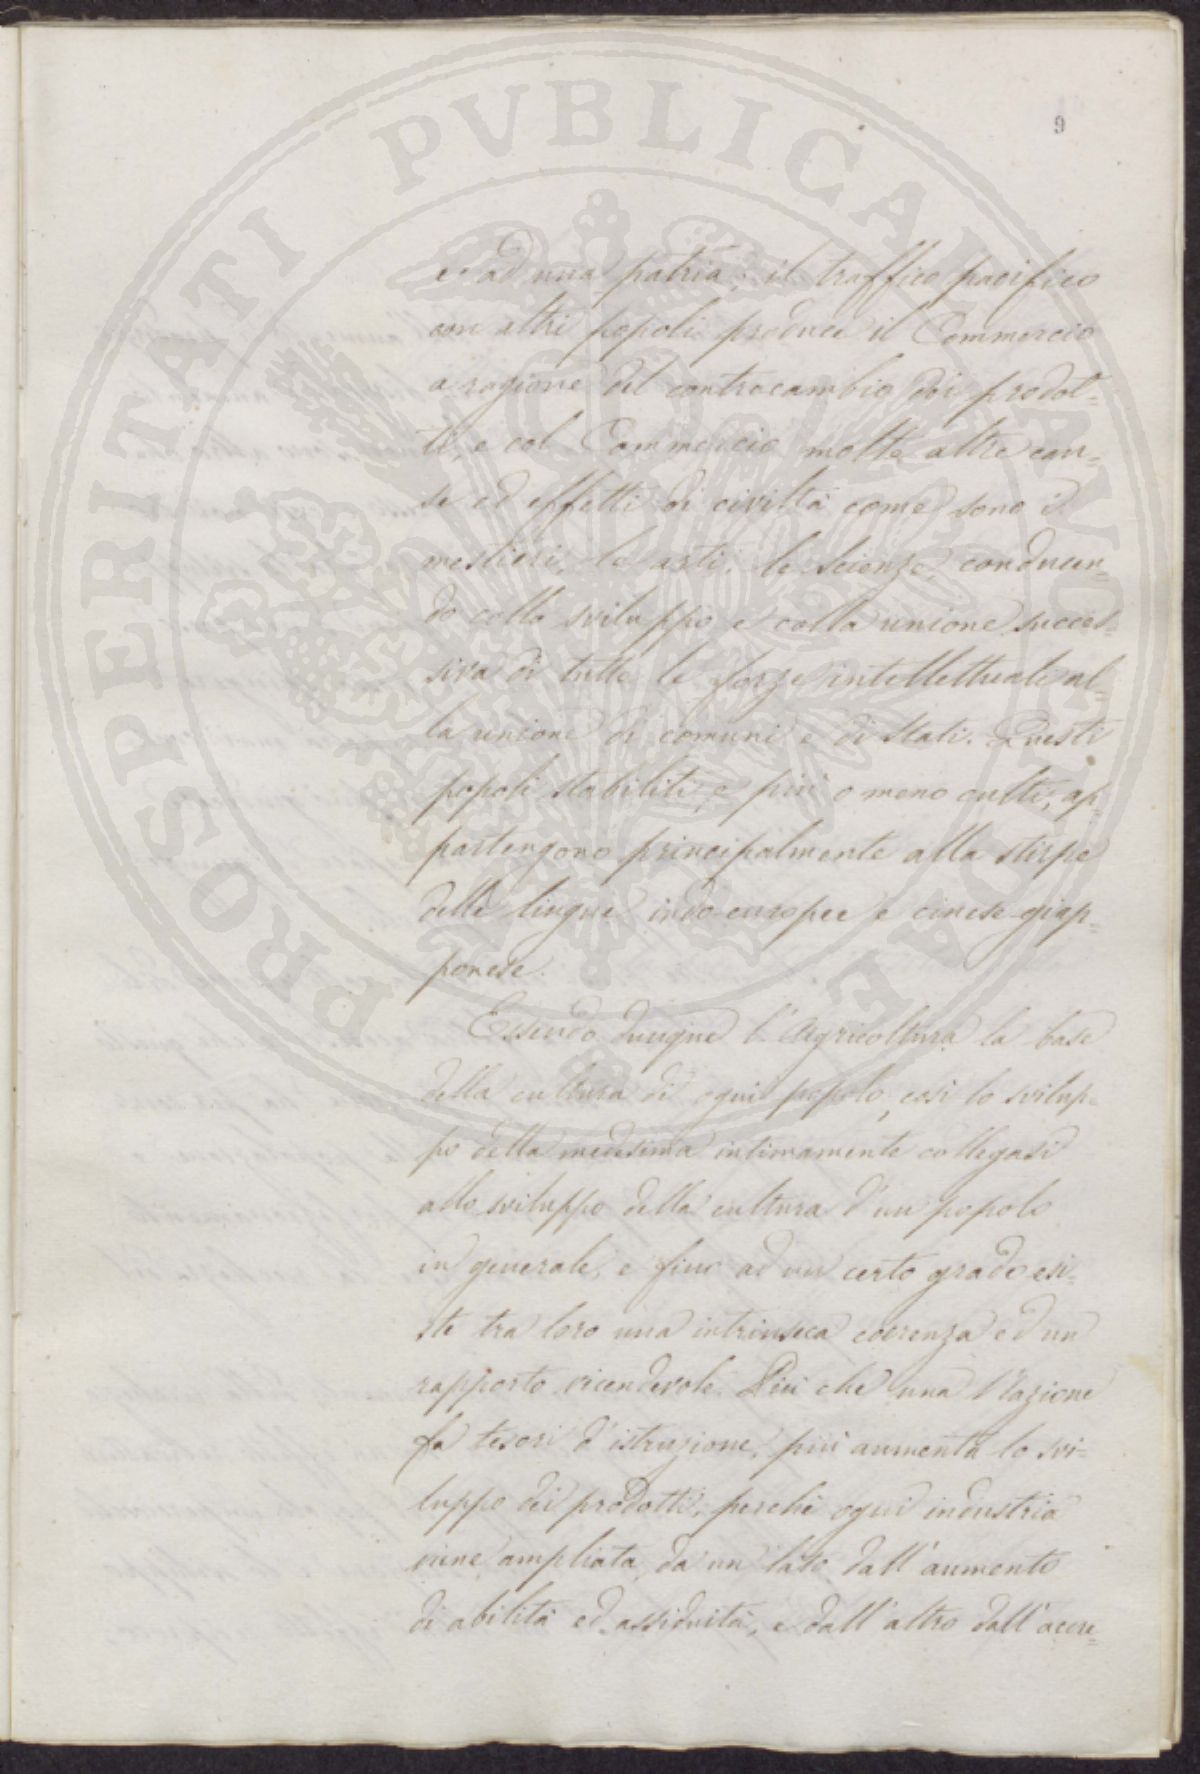 9
PROSPERITATI PVBLICAE AVGENDAE
e ad una patria; il traffico pacifico
con altri popoli produce il Commercio
a ragione del controcambio dei prodot=
ti, e col Commercio molte altre cau=
se ed effetti di civiltà come sono i
mestieri, le arti, le scienze, conducen=
do collo sviluppo e colla unione succes=
siva di tutte le forze intellettuali al=
la unione di comuni e di Stati. Questi
popoli stabiliti, e più o meno culti, ap=
partengono principalmente alla stirpe
delle lingue indo-europee e cinese-giap=
ponese.
Essendo dunque l'Agricoltura la base
della cultura di ogni popolo, così lo svilup=
po della medesima intimamente collegasi
allo sviluppo della cultura d'un popolo
in generale, e fino ad un certo grado esi=
ste tra loro una intrinseca coerenza ed un
rapporto vicendevole. Più che una Nazione
fa tesori d'istruzione, più aumenta lo svi=
luppo dei prodotti, perchè ogni industria
viene ampliata da un lato dall'aumento
di abilità ed assiduità, e dall'altro dall'accre=